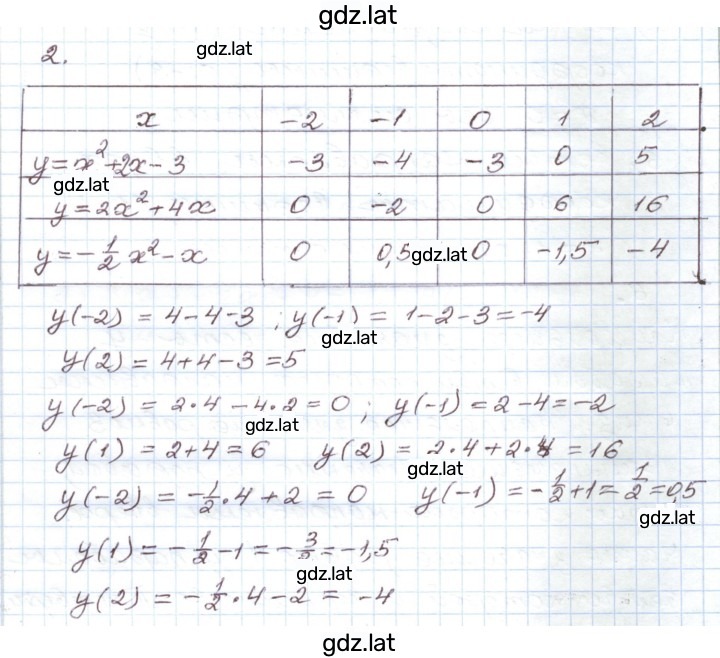 gdz.lat
2.
gdz.lat
x -2 -1 0 1 2
y = x² + 2x - 3 -3 -4 -3 0 5
gdz.lat
y = 2x² + 4x 0 -2 0 6 16
y = -1/2 x² - x 0 0,5 gdz.lat 0 -1,5 -4
y(-2) = 4-4-3 ; y(-1) = 1-2-3=-4
gdz.lat
y(2) = 4+4-3=5
y(-2) = 2·4-4·2=0; y(-1)=2-4=-2
gdz.lat
y(1) = 2+4=6 y(2) = 2·4+2·4=16
gdz.lat
y(-2) = -1/2·4+2 = 0 y(-1) = -1/2+1=1/2=0,5
gdz.lat
y(1)=-1/2-1=-3/2=-1,5
gdz.lat
y(2) = -1/2·4-2= -4
gdz.lat